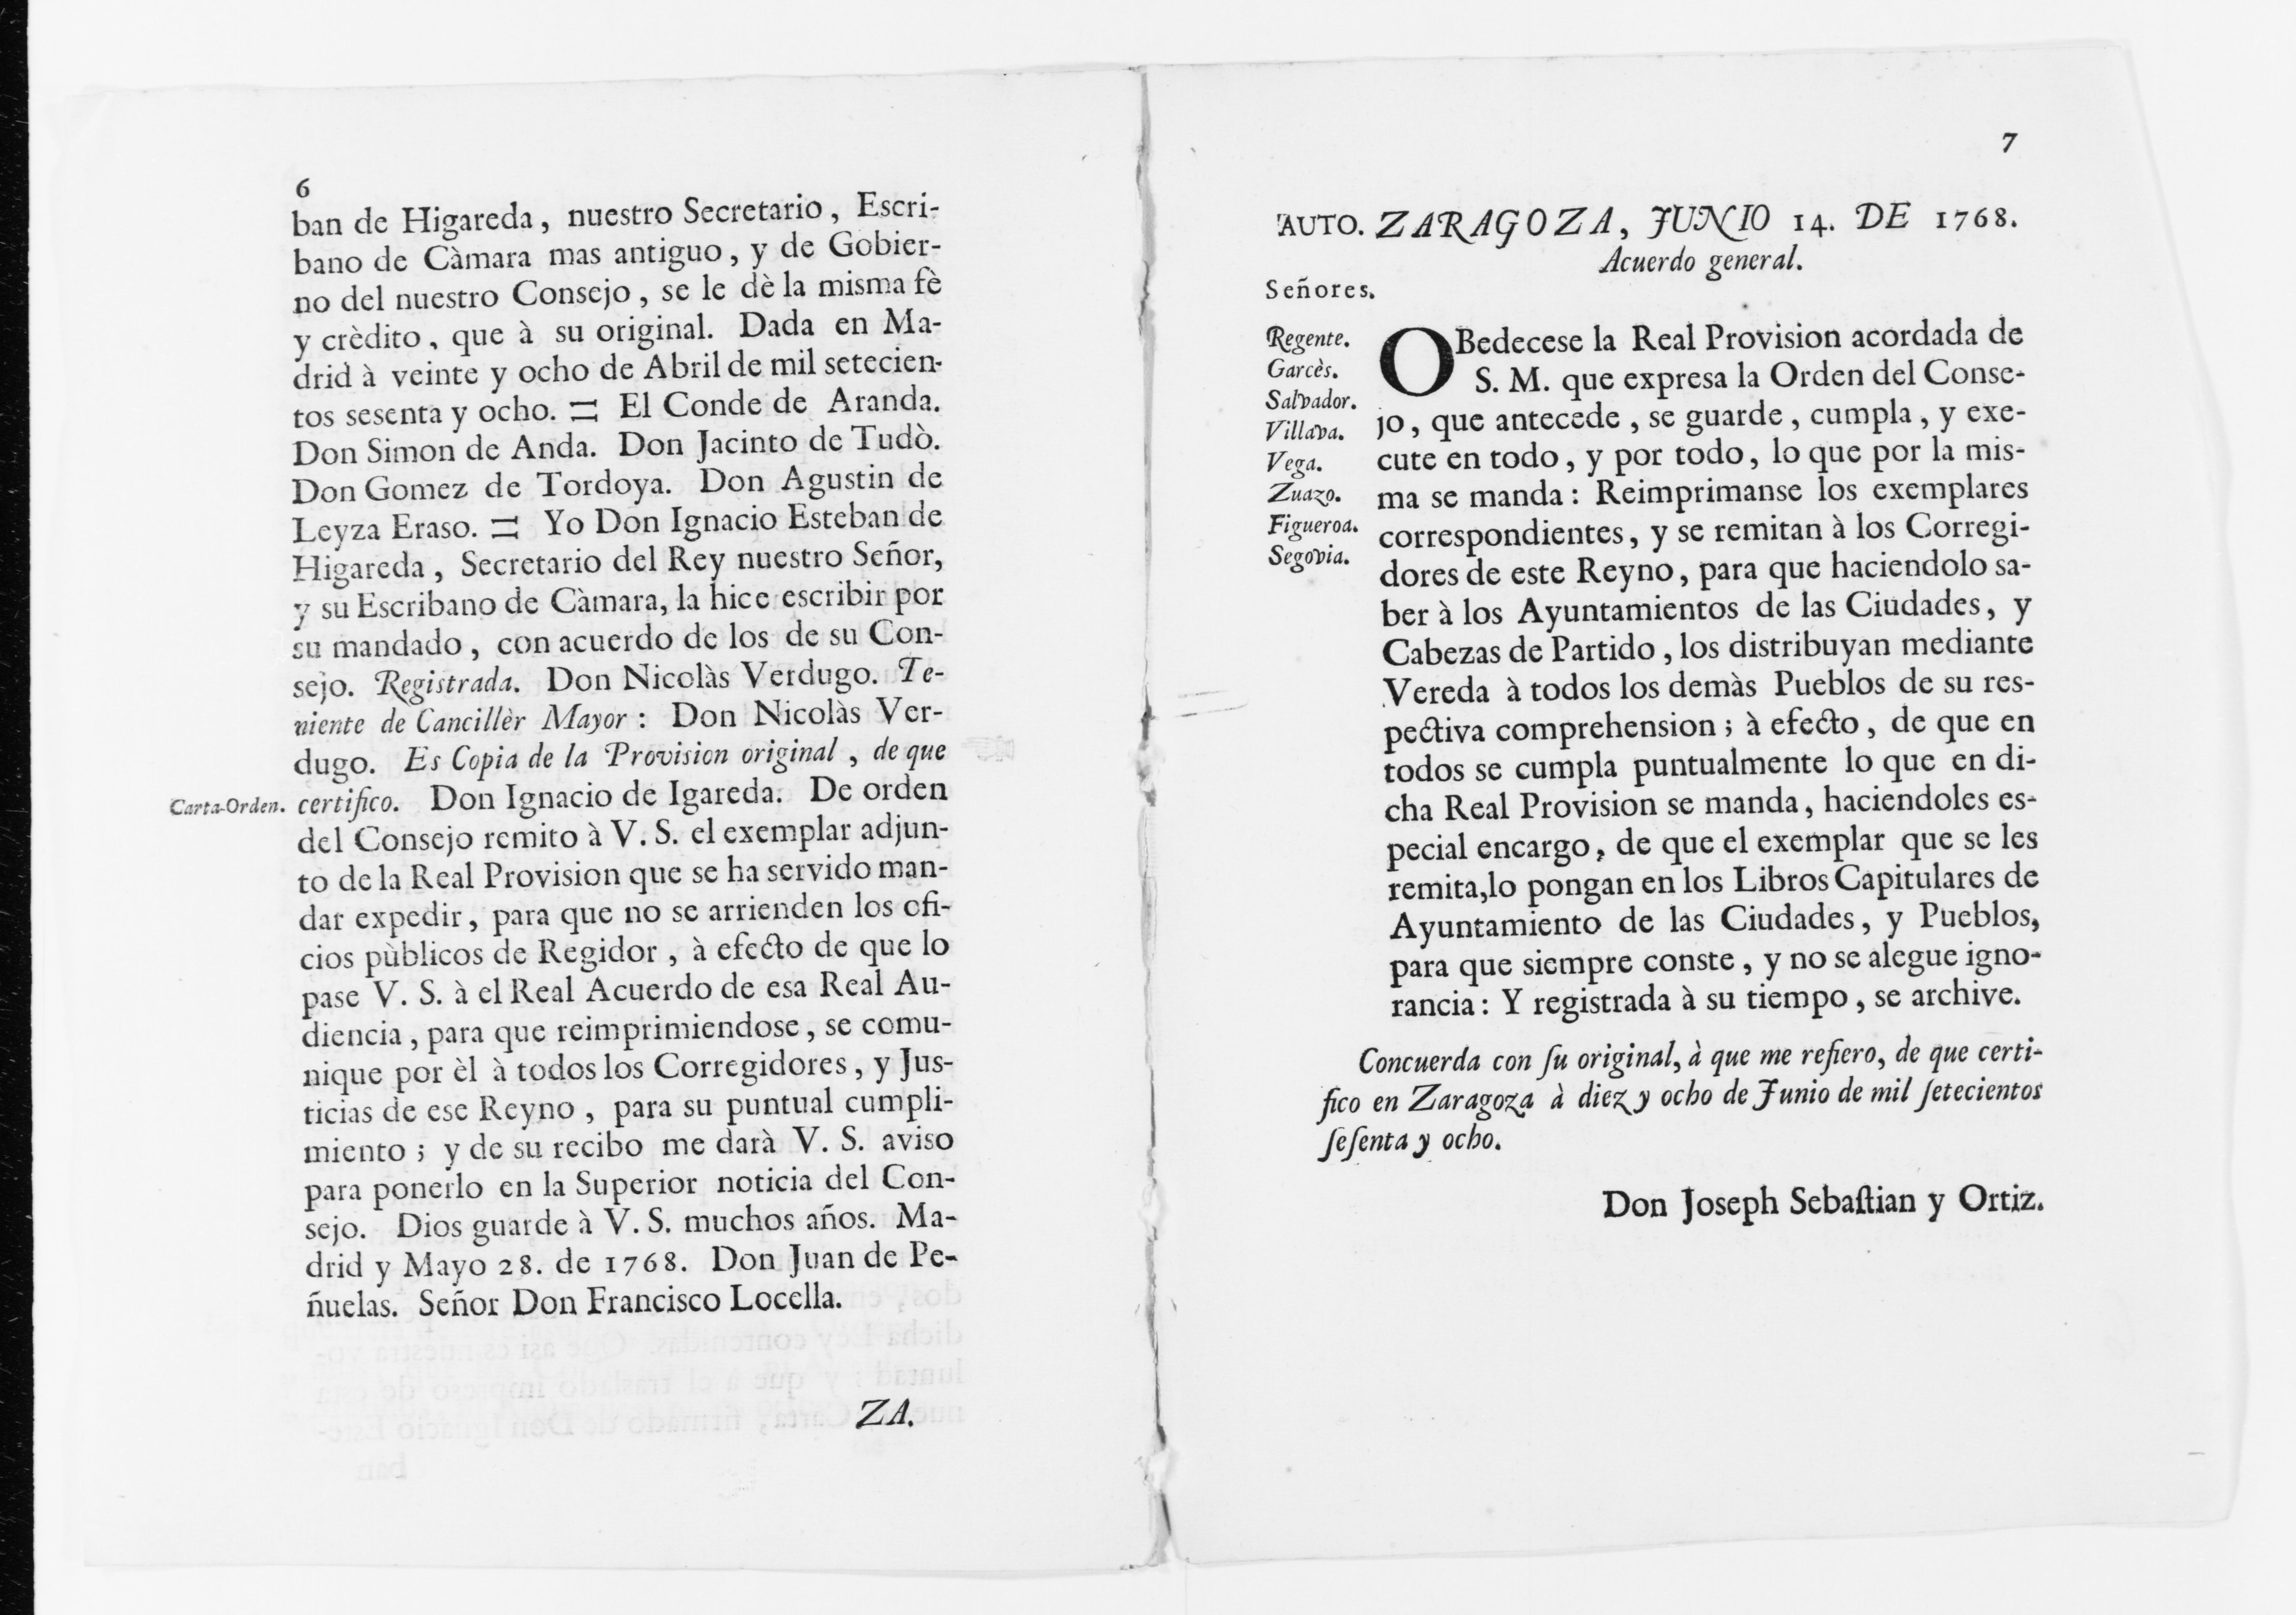 6
ban de Higareda, nuestro Secretario, Escri-
bano de Càmara mas antiguo, y de Gobier-
no del nuestro Consejo, se le dè la misma fè
y crèdito, que à su original. Dada en Ma-
drid à veinte y ocho de Abril de mil setecien-
tos sesenta y ocho. = El Conde de Aranda.
Don Simon de Anda. Don Jacinto de Tudò.
Don Gomez de Tordoya. Don Agustin de
Leyza Eraso. = Yo Don Ignacio Esteban de
Higareda, Secretario del Rey nuestro Señor,
y su Escribano de Càmara, la hice escribir por
su mandado, con acuerdo de los de su Con-
sejo. Registrada. Don Nicolàs Verdugo. Te-
niente de Cancillèr Mayor: Don Nicolàs Ver-
dugo. Es Copia de la Provision original, de que
Carta-Orden. certifico. Don Ignacio de Igareda. De orden
del Consejo remito à V. S. el exemplar adjun-
to de la Real Provision que se ha servido man-
dar expedir, para que no se arrienden los ofi-
cios pùblicos de Regidor, à efecto de que lo
pase V. S. à el Real Acuerdo de esa Real Au-
diencia, para que reimprimiendose, se comu-
nique por èl à todos los Corregidores, y Jus-
ticias de ese Reyno, para su puntual cumpli-
miento; y de su recibo me darà V. S. aviso
para ponerlo en la Superior noticia del Con-
sejo. Dios guarde à V. S. muchos años. Ma-
drid y Mayo 28. de 1768. Don Juan de Pe-
ñuelas. Señor Don Francisco Locella.
ZA.
7
AUTO. ZARAGOZA, JUNIO 14. DE 1768.
Acuerdo general.
Señores.
Regente.
Garcès.
Salvador.
Villava.
Vega.
Zuazo.
Figueroa.
Segovia.
OBedecese la Real Provision acordada de
S. M. que expresa la Orden del Conse-
jo, que antecede, se guarde, cumpla, y exe-
cute en todo, y por todo, lo que por la mis-
ma se manda: Reimprimanse los exemplares
correspondientes, y se remitan à los Corregi-
dores de este Reyno, para que haciendolo sa-
ber à los Ayuntamientos de las Ciudades, y
Cabezas de Partido, los distribuyan mediante
Vereda à todos los demàs Pueblos de su res-
pectiva comprehension; à efecto, de que en
todos se cumpla puntualmente lo que en di-
cha Real Provision se manda, haciendoles es-
pecial encargo, de que el exemplar que se les
remita, lo pongan en los Libros Capitulares de
Ayuntamiento de las Ciudades, y Pueblos,
para que siempre conste, y no se alegue igno-
rancia: Y registrada à su tiempo, se archive.
Concuerda con ſu original, à que me refiero, de que certi-
fico en Zaragoza à diez y ocho de Junio de mil ſetecientos
ſeſenta y ocho.
Don Joseph Sebaſtian y Ortiz.